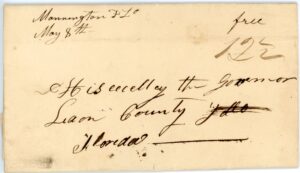 Mannington F Lo
May 8th
free
12½
His excelley the Governor
Leaon County
Florida